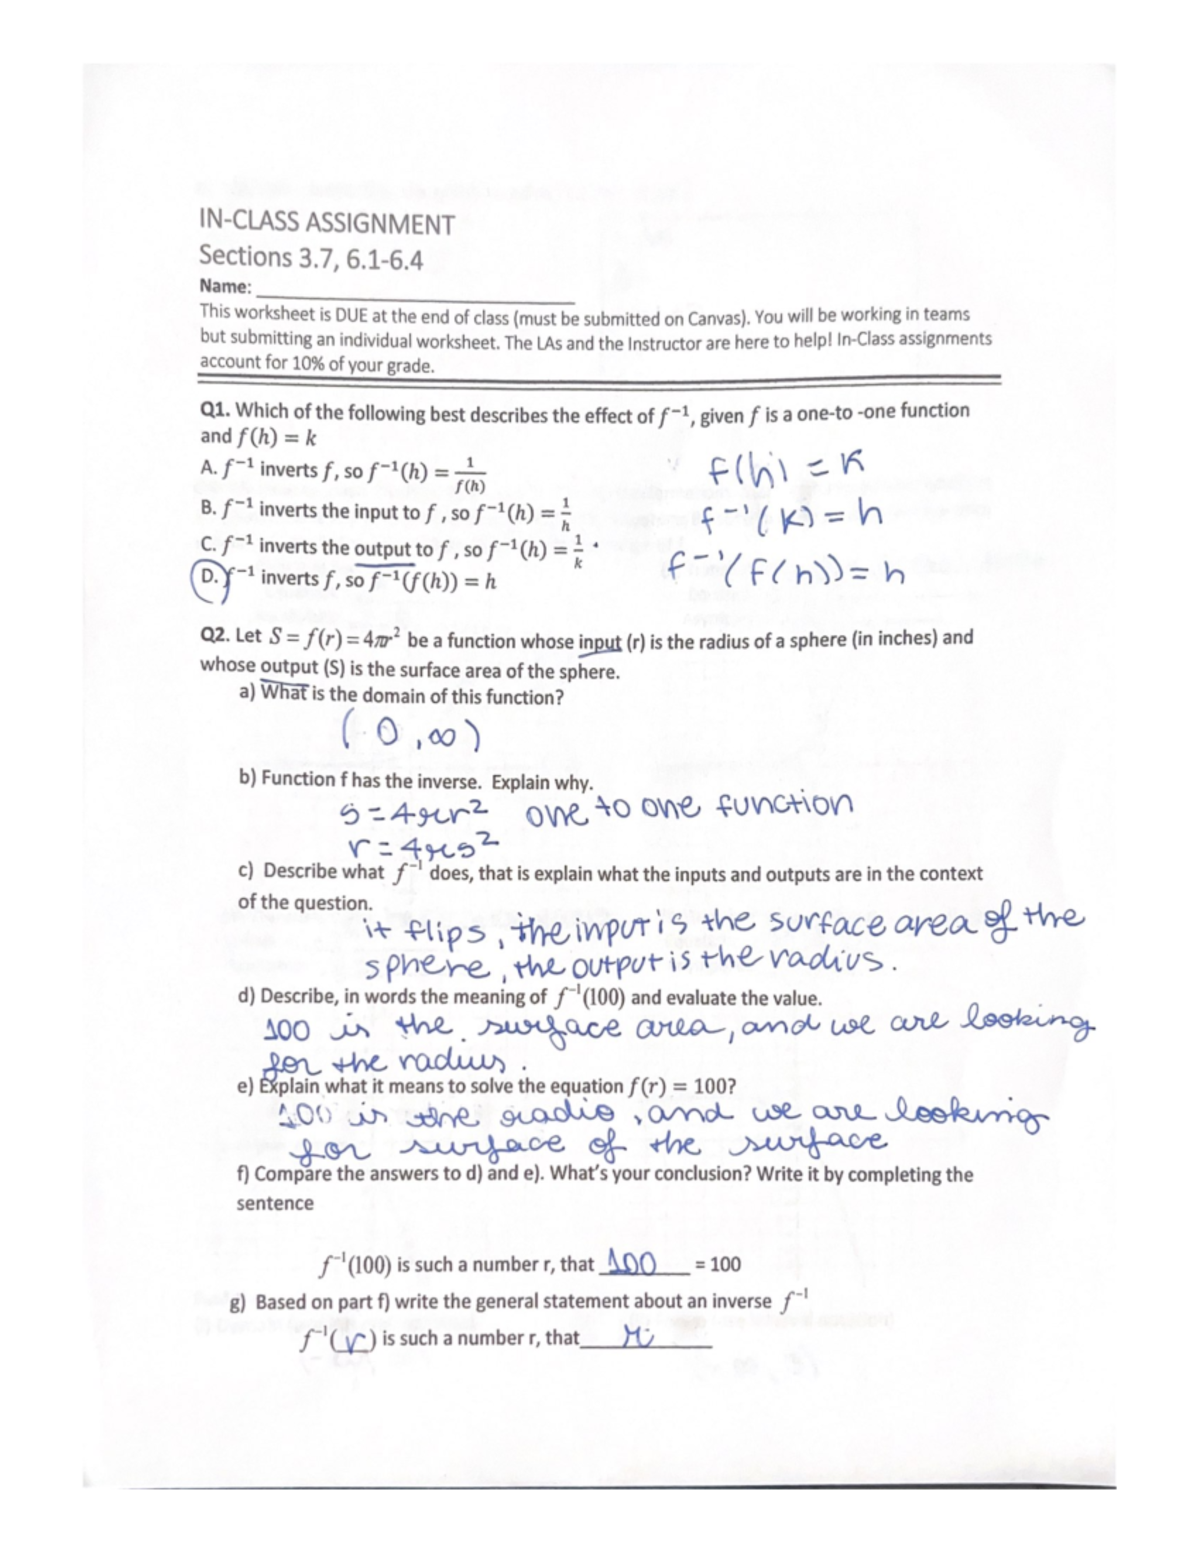 IN-CLASS ASSIGNMENT
Sections 3.7, 6.1-6.4
Name:
This worksheet is DUE at the end of class (must be submitted on Canvas). You will be working in teams
but submitting an individual worksheet. The LAs and the Instructor are here to help! In-Class assignments
account for 10% of your grade.
Q1. Which of the following best describes the effect of f⁻¹, given f is a one-to -one function
and f(h) = k
A. f⁻¹ inverts f, so f⁻¹(h) = 1/f(h)
B. f⁻¹ inverts the input to f , so f⁻¹(h) = 1/h
C. f⁻¹ inverts the output to f , so f⁻¹(h) = 1/k .
D. f⁻¹ inverts f, so f⁻¹(f(h)) = h
f(h) = k
f⁻¹(k) = h
f⁻¹(f(h)) = h
Q2. Let S = f(r) = 4πr² be a function whose input (r) is the radius of a sphere (in inches) and
whose output (S) is the surface area of the sphere.
a) What is the domain of this function?
(0, ∞)
b) Function f has the inverse. Explain why.
s = 4πr² one to one function
r = 4πs²
c) Describe what f⁻¹ does, that is explain what the inputs and outputs are in the context
of the question.
it flips, the input is the surface area of the
sphere, the output is the radius.
d) Describe, in words the meaning of f⁻¹(100) and evaluate the value.
100 is the surface area, and we are looking
for the radius.
e) Explain what it means to solve the equation f(r) = 100?
100 is the radio, and we are looking
for surface of the surface
f) Compare the answers to d) and e). What's your conclusion? Write it by completing the
sentence
f⁻¹(100) is such a number r, that 100 = 100
g) Based on part f) write the general statement about an inverse f⁻¹
f⁻¹(r) is such a number r, that